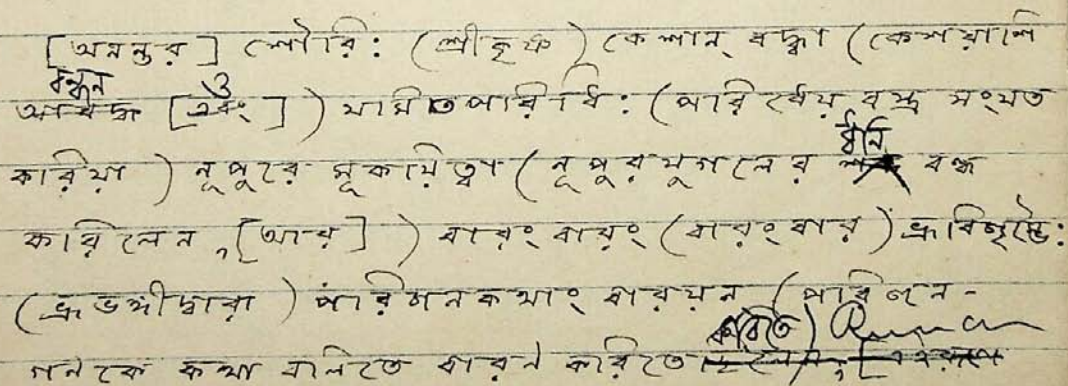 [অনন্তর] শৌরি: (শ্রীকৃষ্ণ) কেশান্ বদ্ধা (কেশরাশি
বন্ধন ও
আবদ্ধ [এবং]) যামিতপারিধি: (পরিধেয় বস্ত্র সংযত
ধ্বনি
করিয়া) নূপুরে মূকয়িত্বা (নূপুরযুগলের শব্দ বন্ধ
করিলেন, [আর]) বারং বারং (বারংবার) ভ্রূবিজৃম্ভৈ:
(ভ্রূভঙ্গীদ্বারা) পরিজনকথাং বারয়ন (পরিজন-
করিতে)
গনকে কথা বলিতে বারণ করিতে